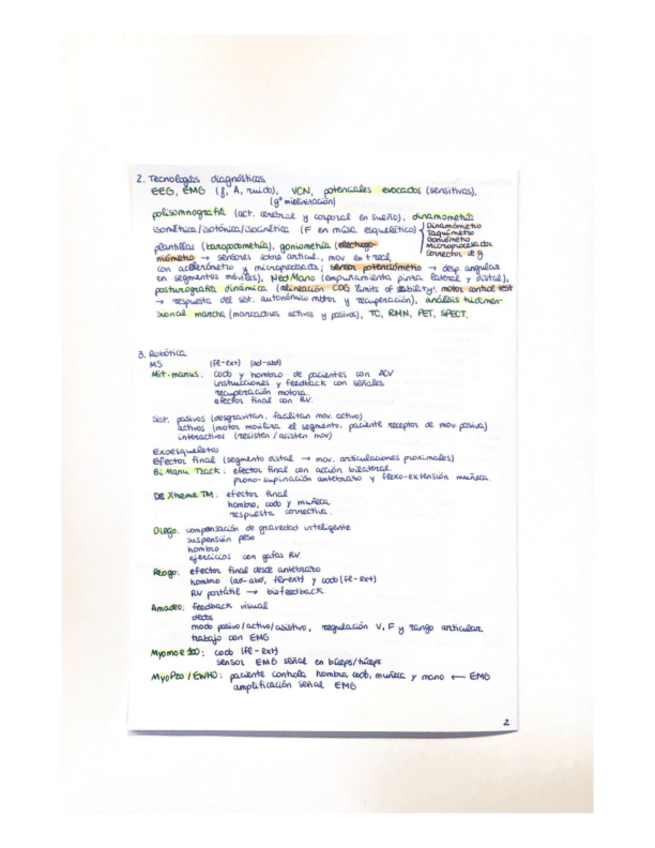 2. Tecnologías diagnósticas
EEG, EMG (f, A, ruido), VCN, potenciales evocados (sensitivas),
(gº mielinización)
polisomnografía (act. cerebral y corporal en sueño), dinamometría
isométrica/isotónica/isocinética (F en músc esquelético)
Dinamómetro
Taquímetro
Goniómetro
Microprocesador
Corrector de g
plantillas (baropodometría), goniometría (electrogo-
niómetro → sensores sobre articul., mov en t real
con acelerómetro y microprocesador; sensor potenciómetro → desp angulares
en segmentos móviles), Ned Mano (empuñamiento, pinza lateral y distal),
posturografía dinámica (alineación COG, limits of stability, motor control test
→ respuesta del sist. autonómico motor y recuperación), análisis tridimen-
sional marcha (marcadores activos y pasivos), TC, RMN, PET, SPECT.
3. Robótica
MS (fe-ext) (ad-abd)
Mit-manus: codo y hombro de pacientes con ACV
instrucciones y feedback con señales
recuperación motora
efector final con RV.
Sist. pasivos (desgravitan, facilitan mov. activo)
activos (motor moviliza el segmento, paciente receptor de mov. pasiva)
interactivos (resisten/asisten mov)
Exoesqueletos
Efector final (segmento distal → mov. articulaciones proximales)
Bi Manu Track: efector final con acción bilateral.
prono-supinación antebrazo y flexo-extensión muñeca.
De Xtreme TM: efector final
hombro, codo y muñeca
respuesta correctiva.
Diego: compensación de gravedad inteligente
suspensión peso
hombro
ejercicios con gafas RV.
Reogo: efector final desde antebrazo
hombro (ad-abd, fe-ext) y codo (fe-ext)
RV portátil → biofeedback.
Amadeo: feedback visual
dedos
modo pasivo/activo/asistivo, regulación V, F y rango articular
trabajo con EMG
Myomo e 100: codo (fe-ext)
sensor EMG señal en bíceps/tríceps
MyoPro/EWHO: paciente controla hombro, codo, muñeca y mano ← EMG
amplificación señal EMG
2